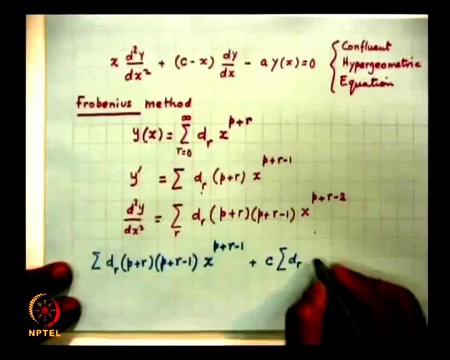 x d²y/dx² + (c-x) dy/dx - a y(x) = 0 { Confluent Hypergeometric Equation
Frobenius method
y(x) = ∑_{r=0}^{∞} d_r x^{p+r}
y' = ∑ d_r (p+r) x^{p+r-1}
d²y/dx² = ∑_r d_r (p+r)(p+r-1) x^{p+r-2}
∑ d_r (p+r)(p+r-1) x^{p+r-1} + c ∑ d_r
NPTEL